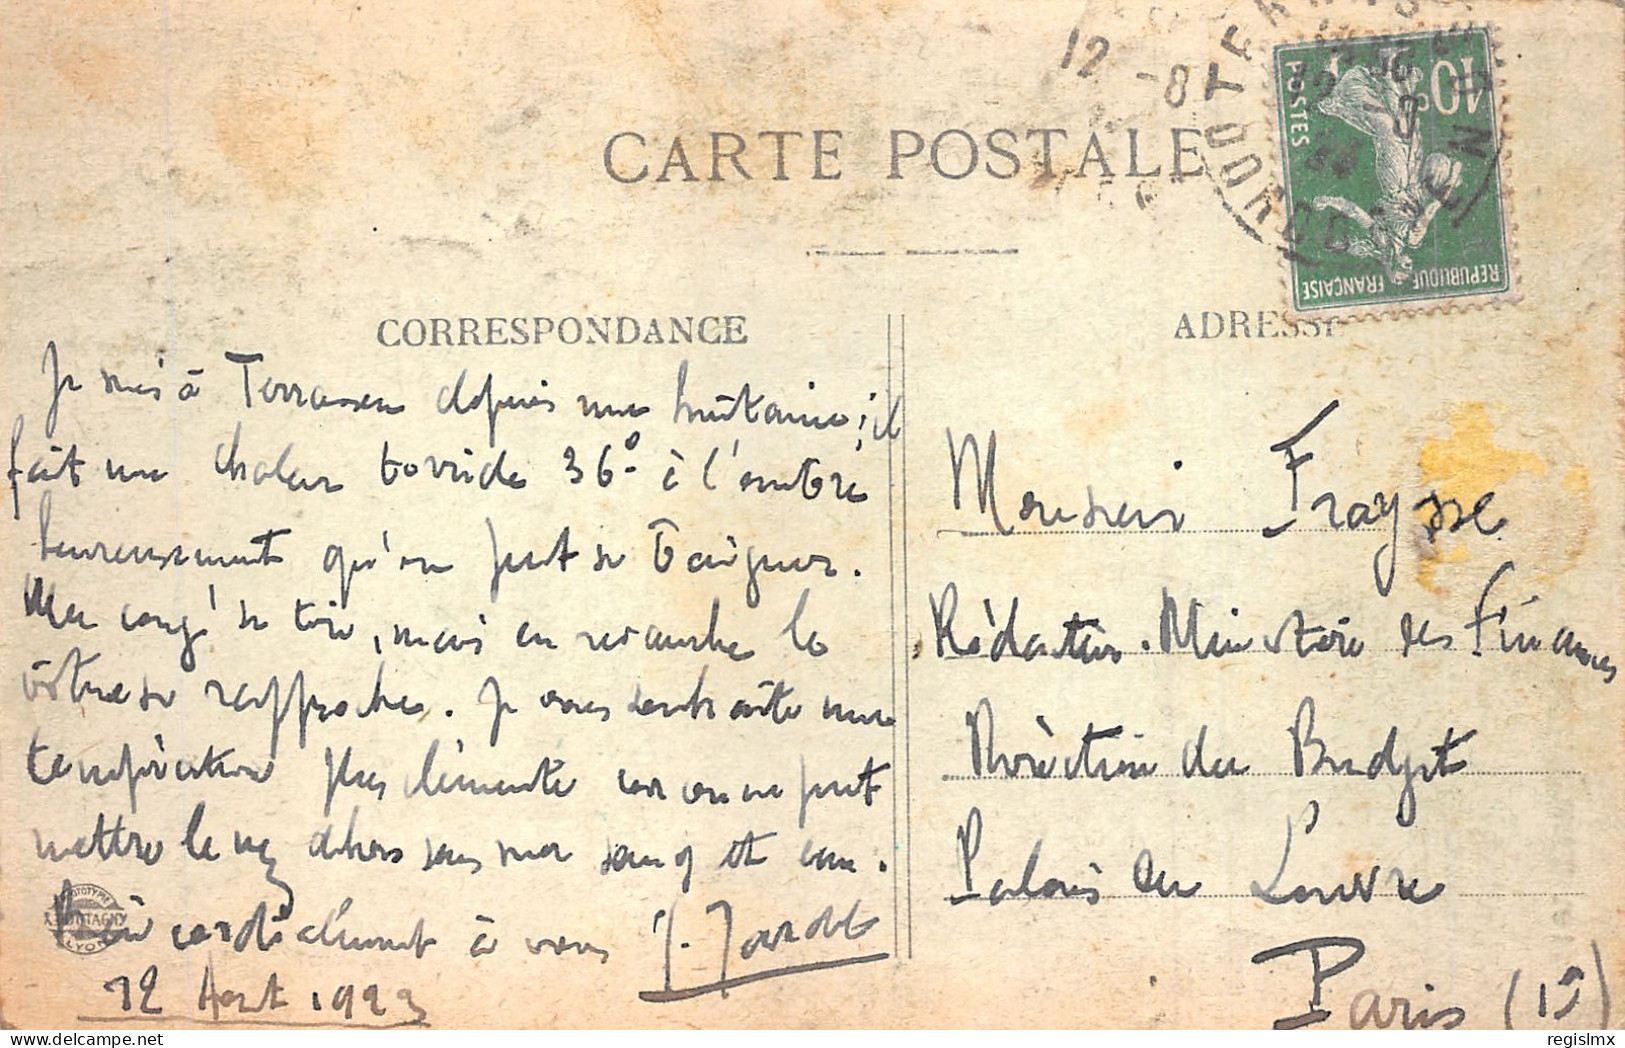 12 -8
CARTE POSTALE
TERRASSON
DORDOGNE
POSTES
10c
REPUBLIQUE FRANÇAISE
CORRESPONDANCE
ADRESSE
Je suis à Terrasson depuis une huitaine; il
fait une chaleur torride 36° à l'ombre
heureusement qu'on peut se baigner.
Mon congé se tire, mais en revanche le
vôtre se rapproche. Je vous souhaite une
température plus clémente car on ne peut
mettre le nez dehors sans suer sang et eau.
Bien cordialement à vous
12 Août 1923
PHOTOTYPIE
MONTAGNY
LYON
Monsieur Fraysse
Rédacteur. Ministère des Finances
Direction du Budget
Palais du Louvre
Paris (1e)
regislmx